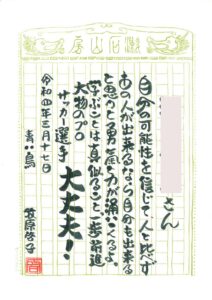 漱石山房
さん
自分の可能性を信じて人と比べず
あの人が出来るなら自分も出来る
と思うと勇気と力が涌いてくるよ
学ぶことは真似ること一歩前進
大物のプロ
サッカー選手
大丈夫！
令和四年三月十七日
青い鳥
笠原啓子